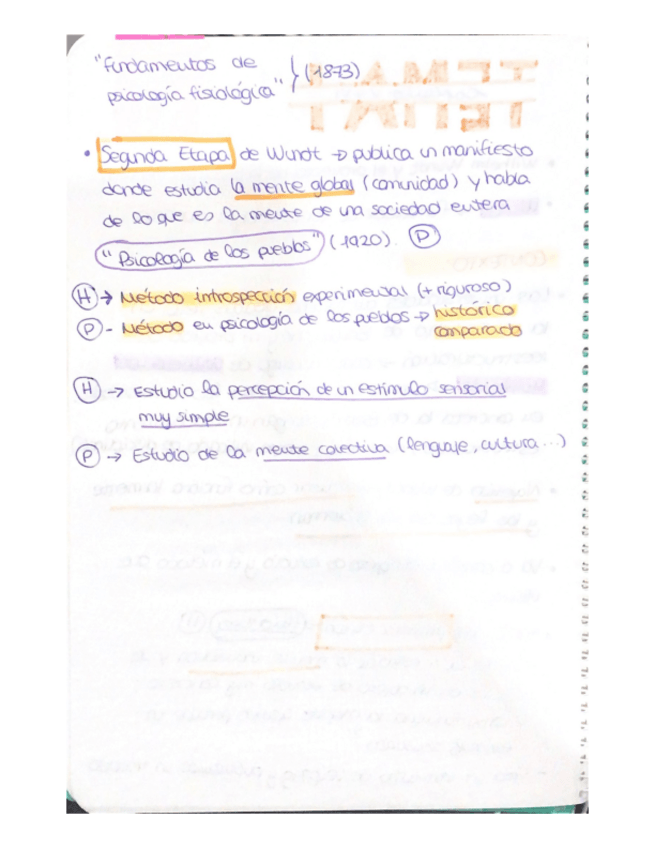 "Fundamentos de
psicología fisiológica" } (1873)
• Segunda Etapa de Wundt → publica un manifiesto
donde estudia la mente global (comunidad) y habla
de lo que es la mente de una sociedad entera
("Psicología de los pueblos") (1920). P
H → Método introspección experimental (+ riguroso)
P - Método en psicología de los pueblos → histórico
comparado
H → Estudio la percepción de un estímulo sensorial
muy simple
P → Estudio de la mente colectiva (lenguaje, cultura...)